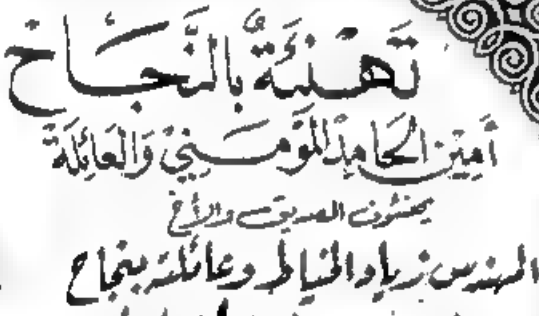 تَهْنِئَةٌ بِالنَّجَاح
أَمِيْن الحَامِد المُومَنِيْ وَالْعَائِلَة
يهنئون الصديق والأخ
المهندس زياد الخياط وعائلته بنجاح